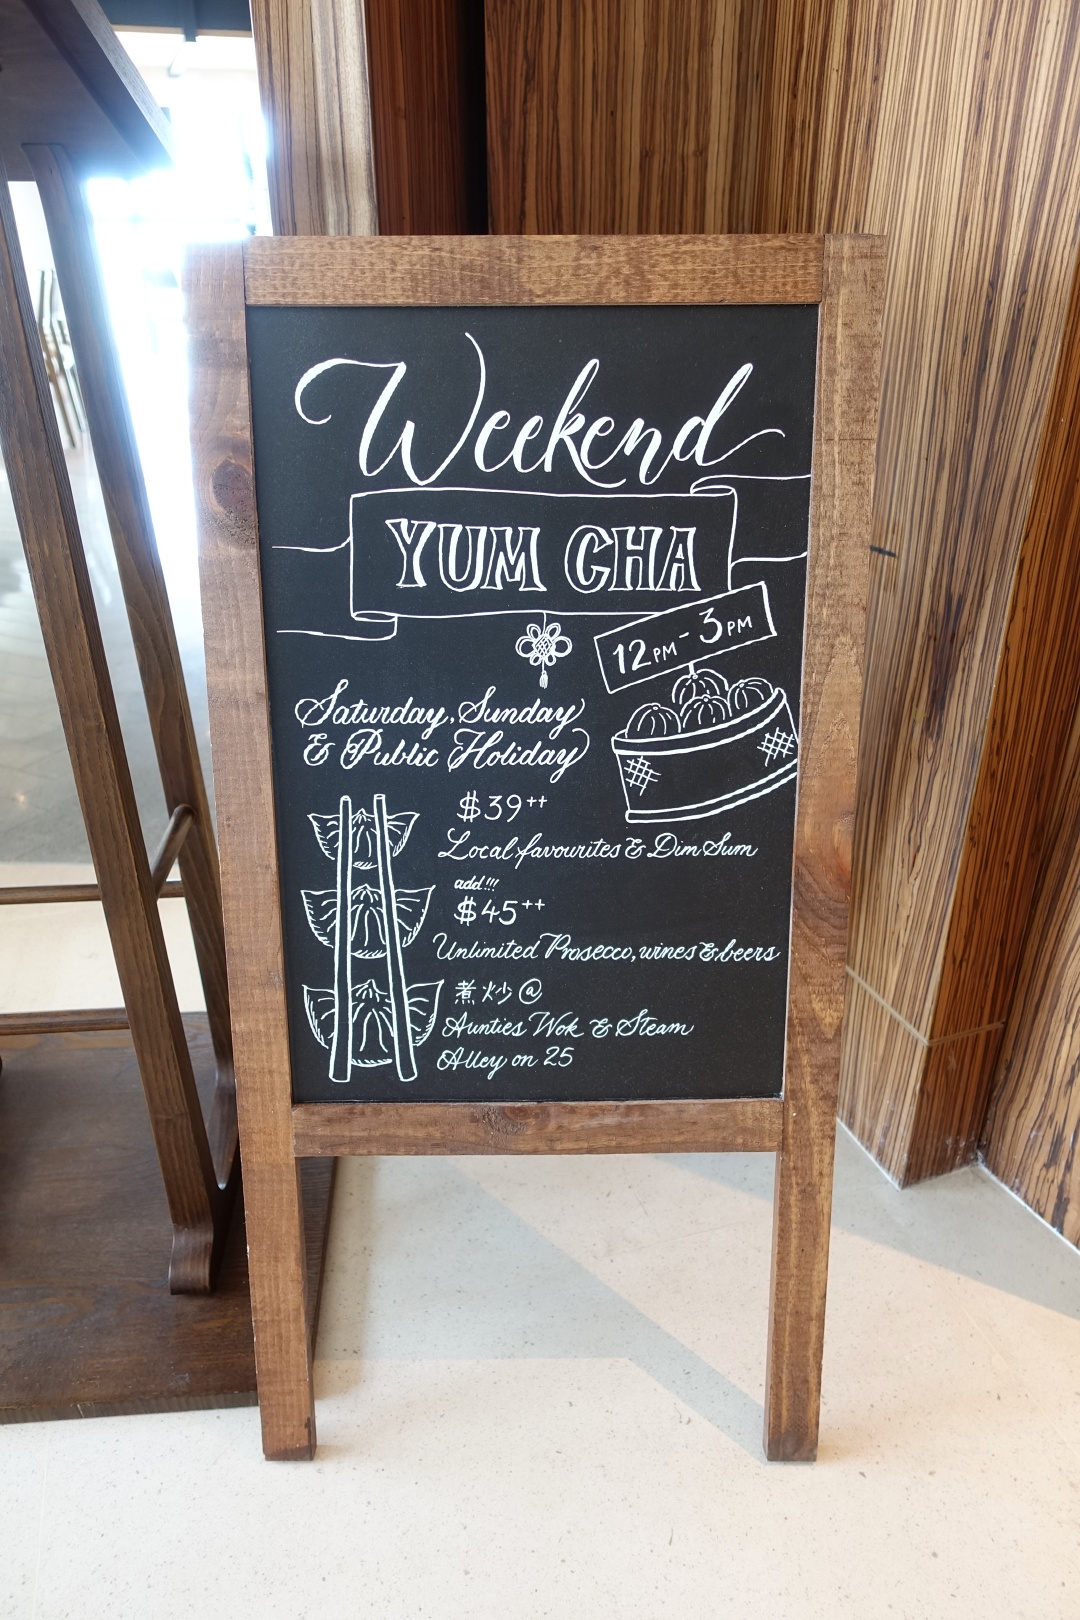 Weekend
YUM CHA
12PM - 3PM
Saturday, Sunday
& Public Holiday
$39++
Local favourites & Dim Sum
add!!!
$45++
Unlimited Prosecco, wines & beers
煮炒@
Aunties Wok & Steam
Alley on 25